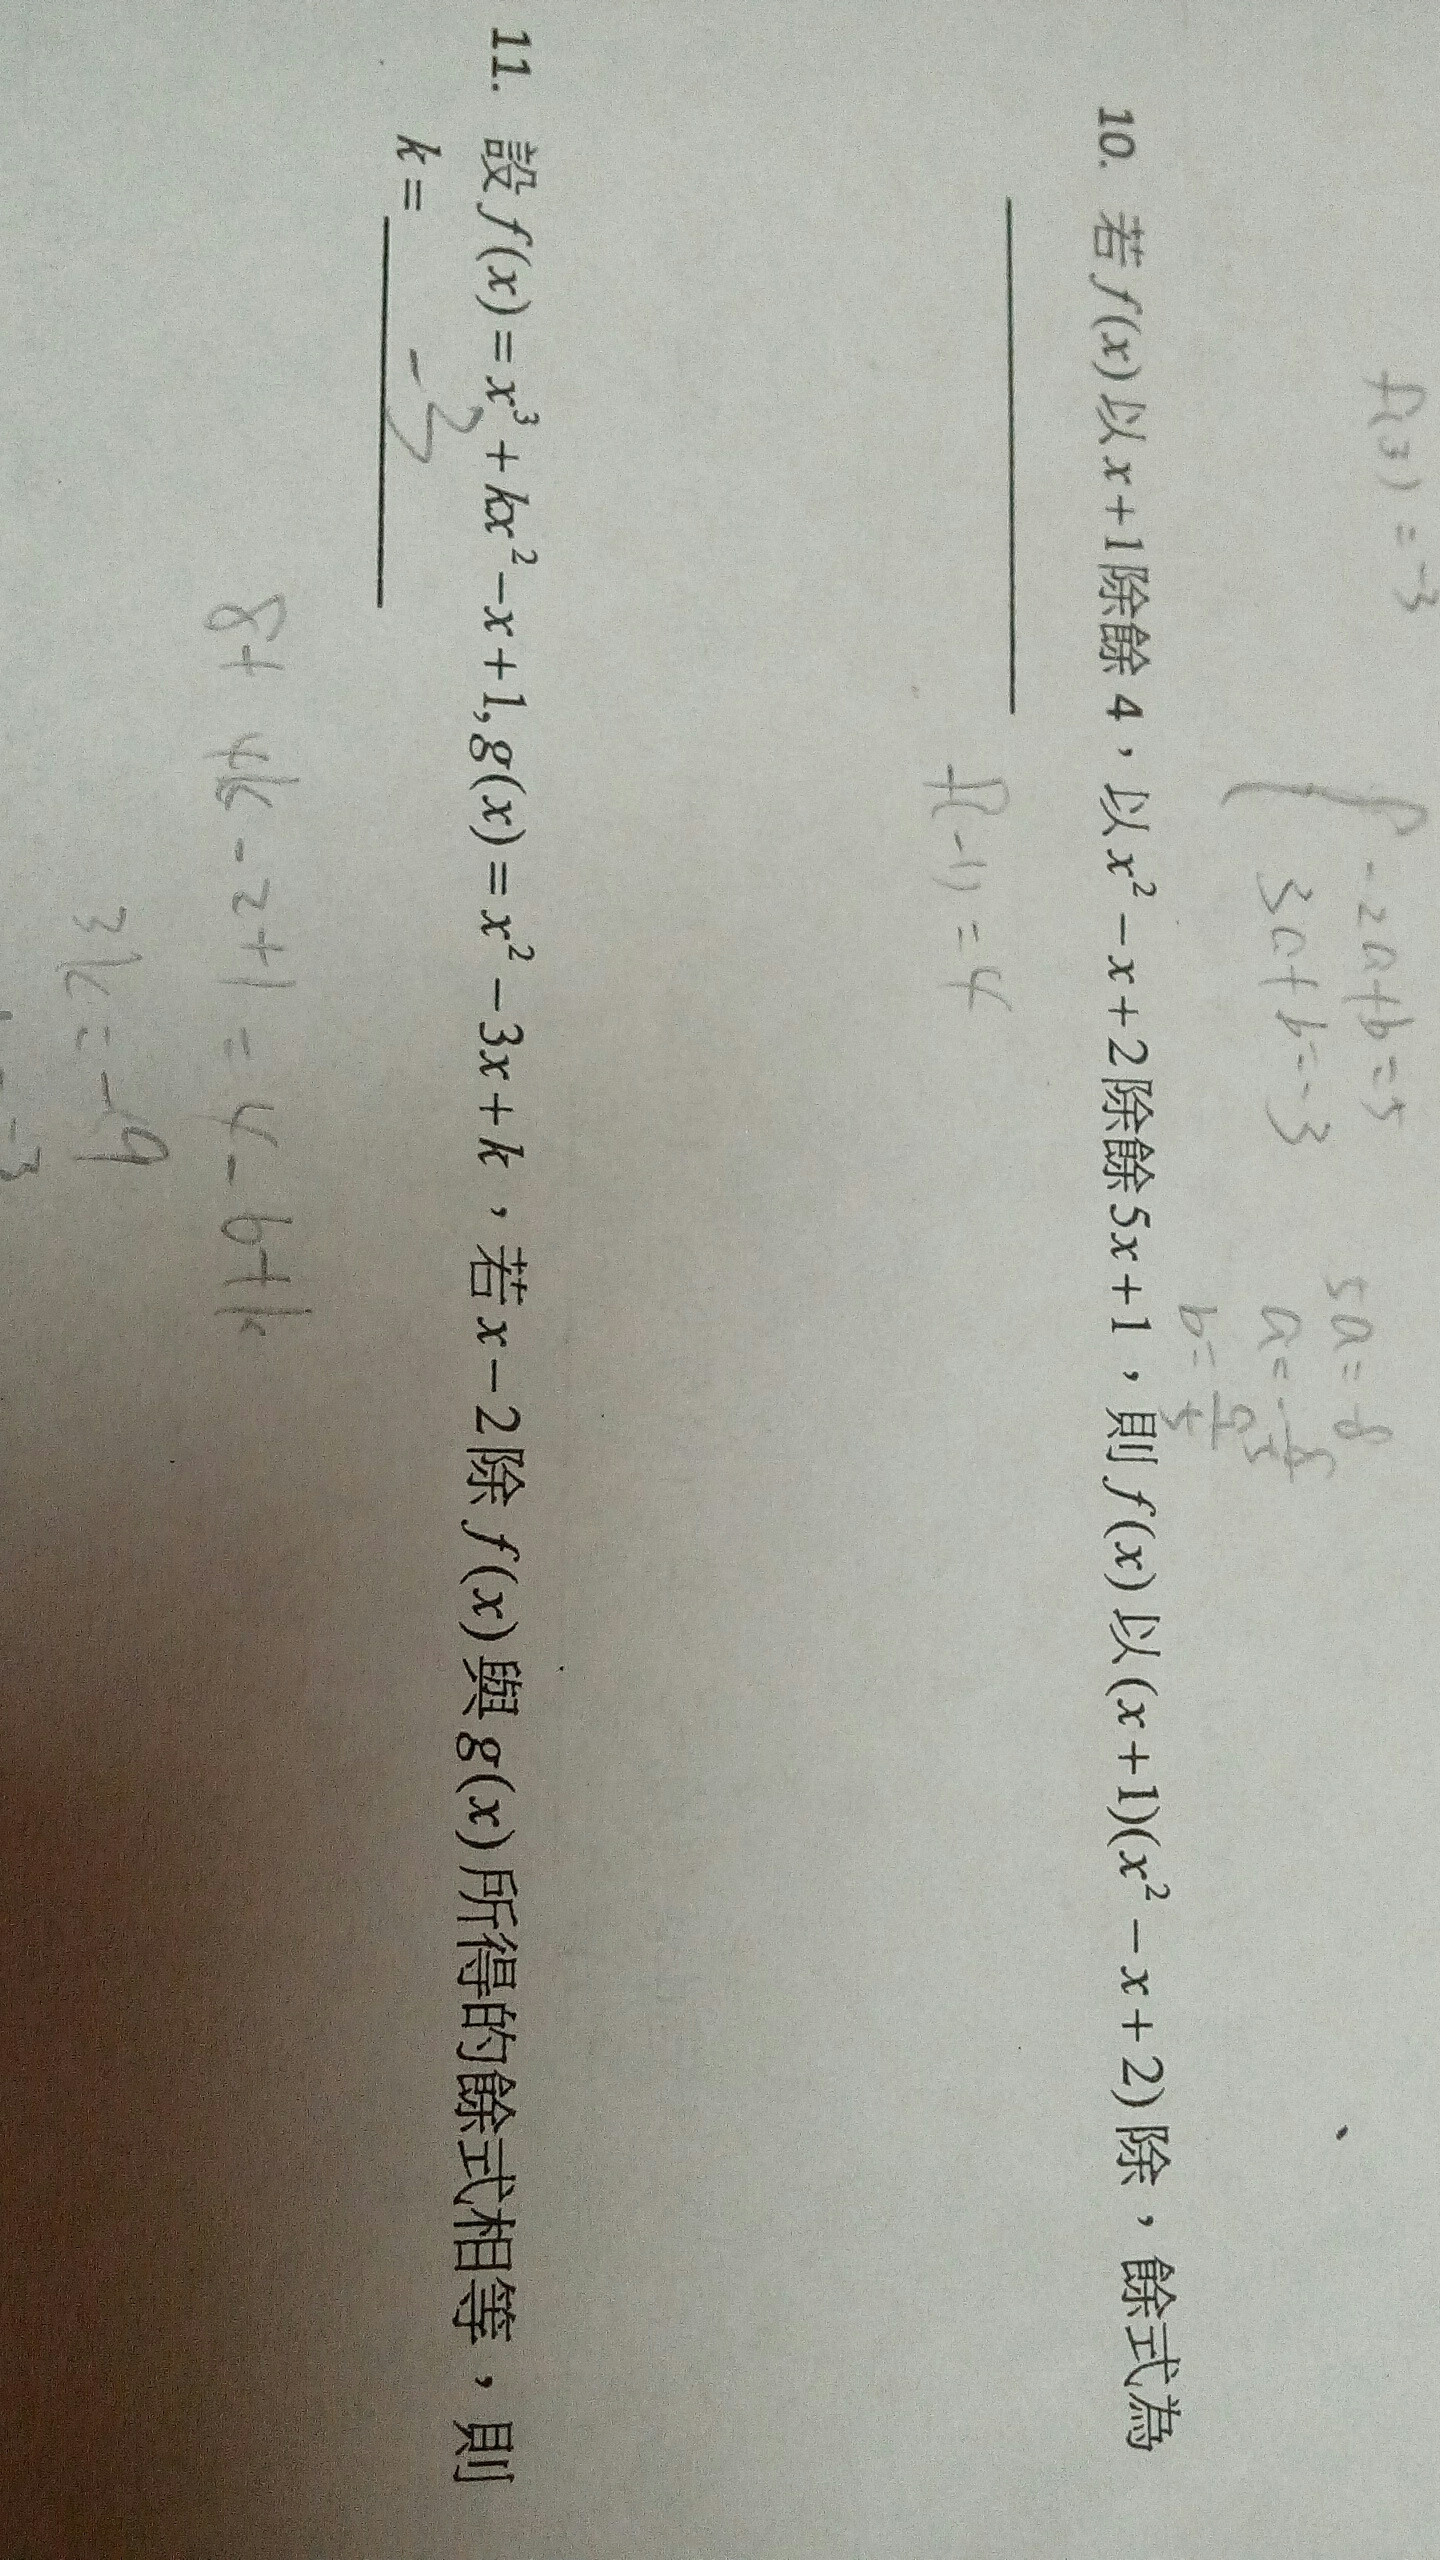 f(3) = -3
-2a+b=5
3a+b=-3
5a=-8
a=-8/5
b=9/5
10. 若 f(x) 以 x+1 除餘 4，以 x²−x+2 除餘 5x+1，則 f(x) 以 (x+1)(x²−x+2) 除，餘式為
f(-1)=4
11. 設 f(x)=x³+kx²−x+1, g(x)=x²−3x+k，若 x−2 除 f(x) 與 g(x) 所得的餘式相等，則
k= -3
8+4k-2+1=4-6+k
3k=-9
-3